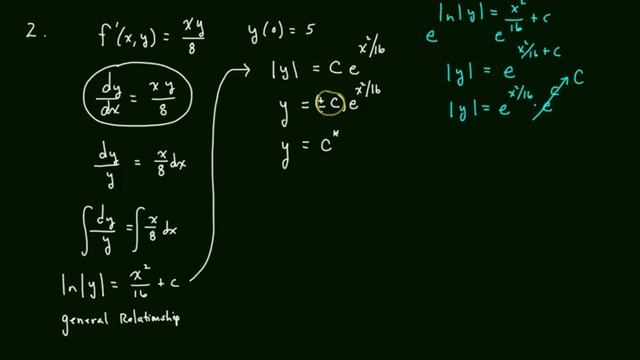 2. f'(x,y) = xy/8
dy/dx = xy/8
dy/y = x/8 dx
∫ dy/y = ∫ x/8 dx
ln|y| = x²/16 + c
general Relationship
y(0) = 5
|y| = C e^(x²/16)
y = ±C e^(x²/16)
y = C*
ln|y| = x²/16 + c
e e
|y| = e^(x²/16 + c)
|y| = e^(x²/16) · e^c C